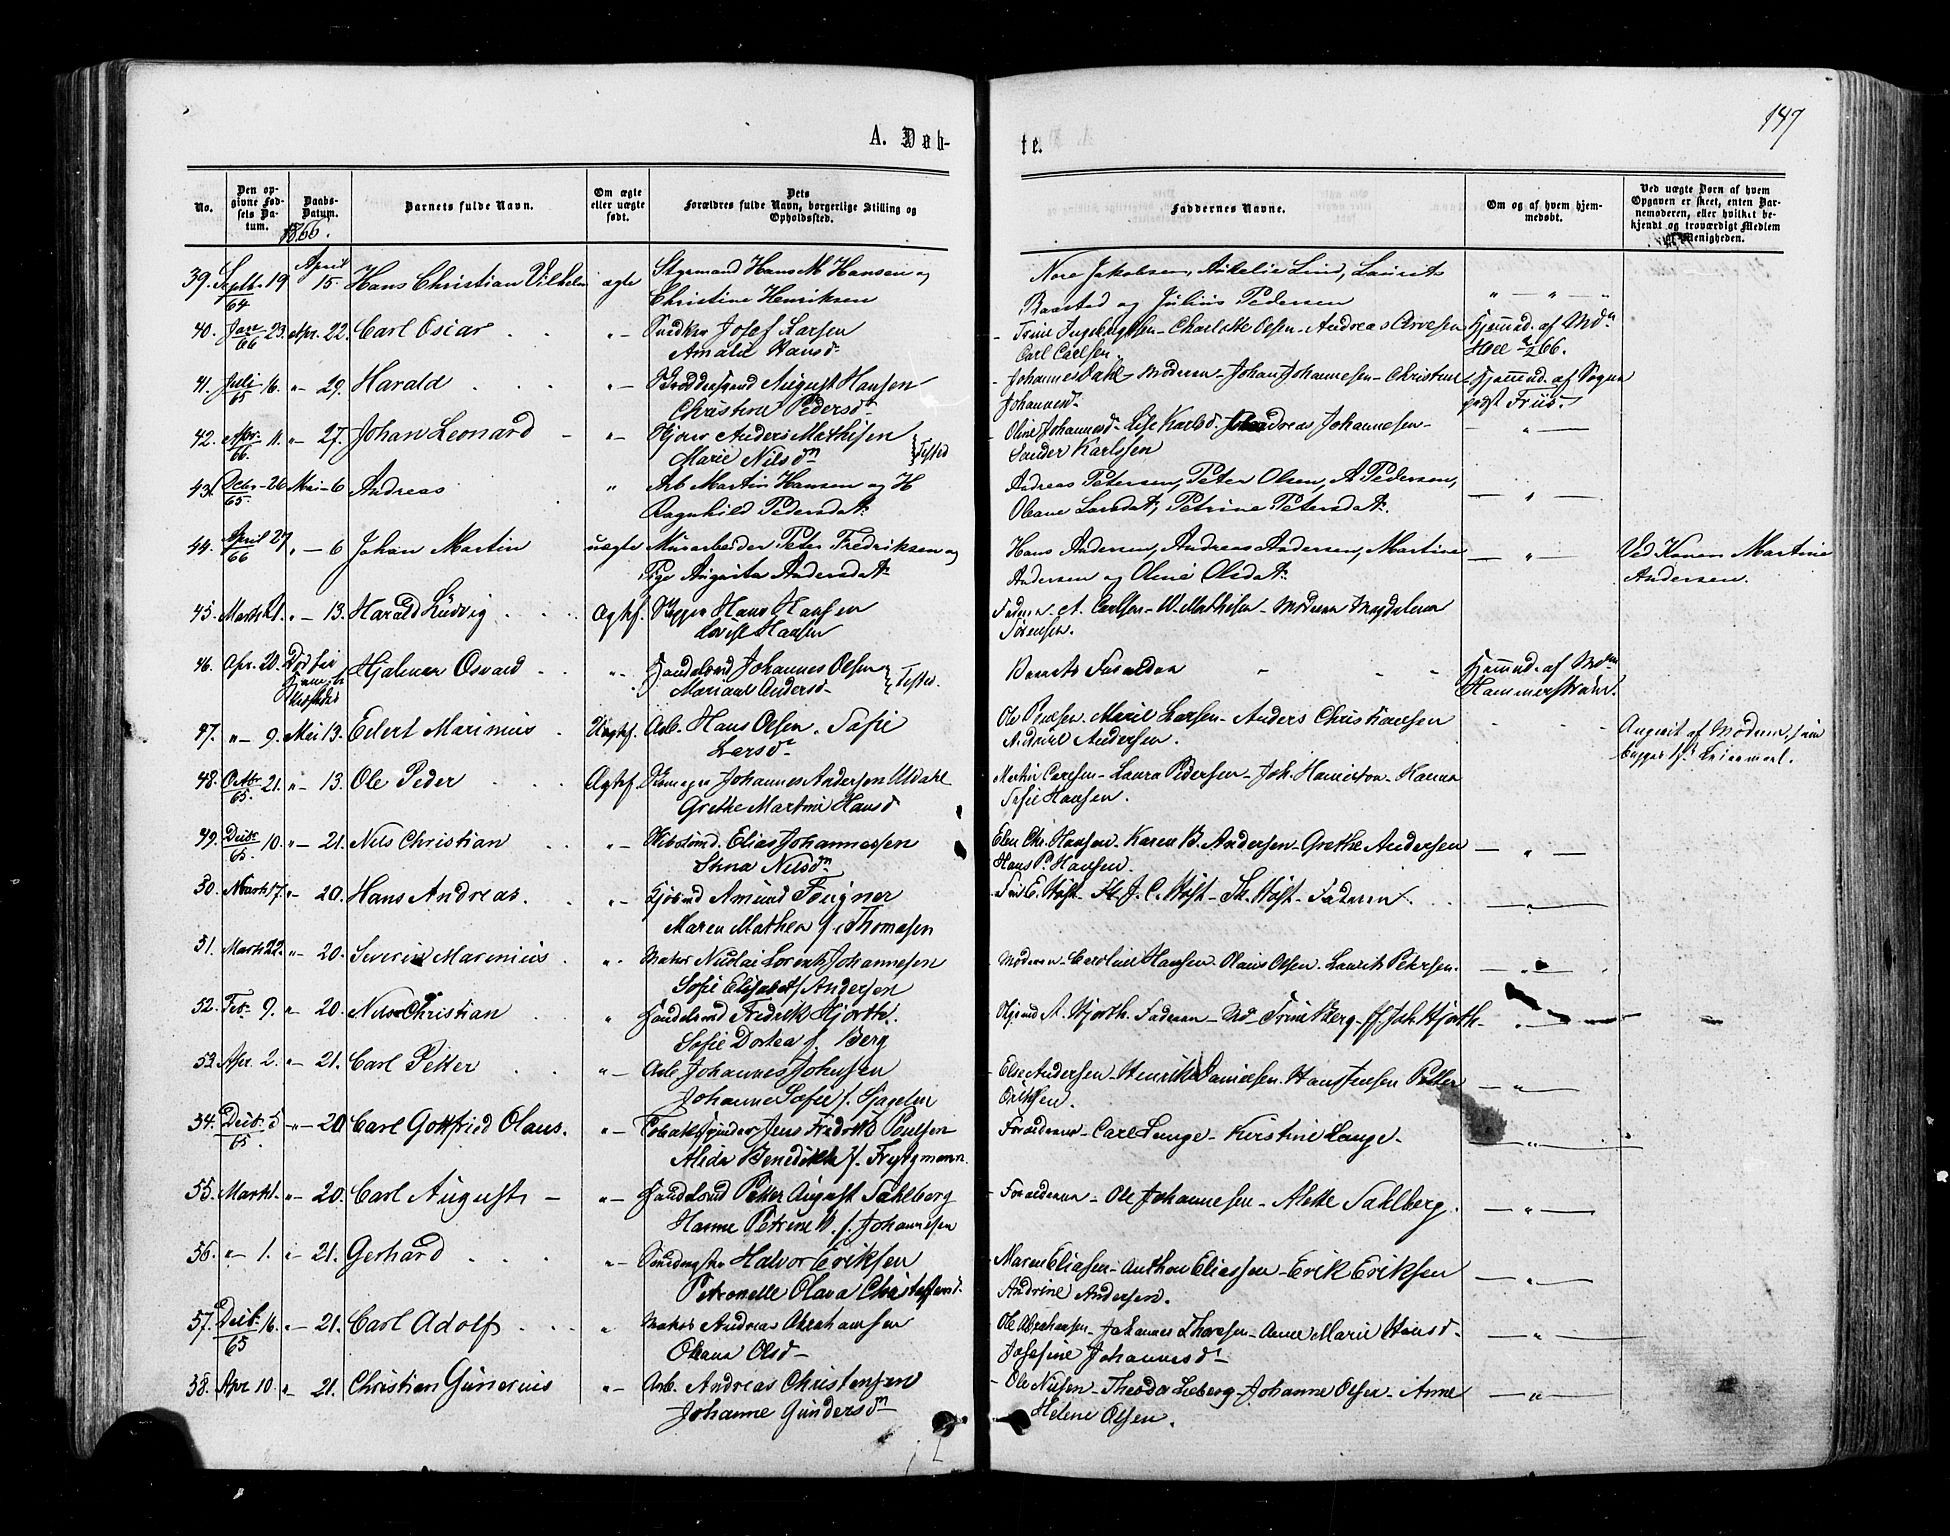 147
A. Døb-
te.
No.
Den op-
givne Fød-
sels Da-
tum.
Daabs-
Datum.
1866.
Barnets fulde Navn.
Om ægte
eller uægte
født.
Dets
Forældres fulde Navn, borgerlige Stilling og
Opholdssted.
Faddernes Navne.
Om og af hvem hjem-
medøbt.
Ved uægte Børn af hvem
Opgaven er skeet, enten Bar-
nemoderen, eller hvilket be-
kjendt og troværdigt Medlem
af Menigheden.
39. Septb. 19 64 April 15. Hans Christian Vilhelm ægte Styrmand Hans M Hansen og
Christine Henriksen
Jakobsen, Lind, Laurits
Baastad og Julius Pedersen
40. Jan 23. 66 Apr. 22. Carl Oscar " Josef Larsen
Amalie Hansd
Trine Charlotte Olsen - Andreas
Carl Carlsen.
Hjemmed. af
66.
41. Juli 16. 65 " 29. Harald " August Hansen
Christine Pedersd
Johannes Dahl - Moderen - Johan Johannesen - Christine
Johannesd
Hjemmed. af Sogne
præst Friis.
42. Apr. 11. 66 " 27. Johan Leonard " Anders Mathisen
Marie Nilsdn
Oline Johannesd - Lise Karlsd. Andreas Johannesen -
Sander Karlssen
"
43. 26 65 Mai 6 Andreas " Arb Martin Hansen og
Ragnhild Pedersdat:
Andreas Petersen, Peter Olsen, A Pedersen,
Oleane Larsdat, Petrine Petersdat:
"
44. April 27 66 " 6 Johan Martin uægte Murarbeider Peter Fredriksen og
Pige Augusta Andersdat:
Hans Andersen, Andreas Andersen, Martine
Andersen og Oline Olsdat:
"
Ved Konen Martine
Andersen.
45. Marts 21. " 13. Harald Ludvig Ægtf. Hans Hansen
Lovise Hansen
Faderen - A. Carlsen - W. Mathisen - Moderen Magdalena
Sørensen.
46. Apr. 20. Hjalmar Osvald " Handelsmd Johannes Olsen
Mariane Andersd
Barnets Forældre
Hjemmd. af
Hammerstrøm.
47. " 9. Mai 13. Edert Marinius Uægtf. Arb. Hans Olsen. Sofie
Larsd
Ole Marie Larsen - Anders Christiansen
Andersen.
Angivet af Moderen, som
48. Octbr 21. 65. " 13. Ole Peder Ægtf. Johannes Andersen
Grethe Martine Hansd
Martin Carlsen - Laura Pedersen - Joh. - Hanna
Sofie Hansen.
49. Decbr. 10. 65. " 21. Nils Christian " Elias Johannessen
Stina Nilsdn
Elen Chr. Hansen. Karen B. Andersen - Grethe Andersen
Hans P. Hansen.
"
50. Marts 17. " 20. Hans Andreas. " Amund Fougner
Maren Mathea f. Thomasen
J. C. Høst - Th. Høst - Faderen
"
51. Marts 22. " 20. Severin Marinius " Nicolai Lorents Johannesen
Sofie Elisabet f Andersen
Moderen - Caroline Hansen - Olaus Olsen - Laurits Petersen.
"
52. Feb. 9. " 20. Nils Christian " Handelsmd Fredrik Hjorth.
Sofie Dortea f. Berg
A. Hjorth. Faderen - Trine Berg - Joh. Hjorth -
"
53. Apr. 2. " 21. Carl Petter " Arb Johannes Johnsen
Johanne Sofie f.
Else Andersen - Henrik Danielsen - Hans Jensen Petter
Eriksen.
"
54. Decb. 5 65. " 20 Carl Gottfried Olaus. " Tobakspinder Jens Fredrik Poulsen
Alida Benedikte f.
Forældrene - Carl Lange - Kirstine Lange -
"
55. Marts 1. " 20. Carl August " Handelsmd Petter August Sahlberg
Hanne Petrine f. Johannesen
Forældrene - Ole Johannesen - Alette Sahlberg.
"
56. " 1. " 21. Gerhard " Halvor Eriksen
Petronelle Olava Christoffersd.
Maren Eliasen - Anthon Eliassen - Erik Eriksen
Andrine Andersen.
"
57. Decbr. 16. 65 " 21. Carl Adolf " Andreas Abrahamsen
Oleana Olsd
Ole Abrahamsen - Johannes Thoresen - Anne Marie Hansd.
Josefine Johannesd
"
58. Apr 10 " 21. Christian Gunerius " Arb. Andreas Christensen
Johanne Gundersdn
Ole Nilsen - Theodor - Johanne Olsen - Anne
Helene Olsen.
"